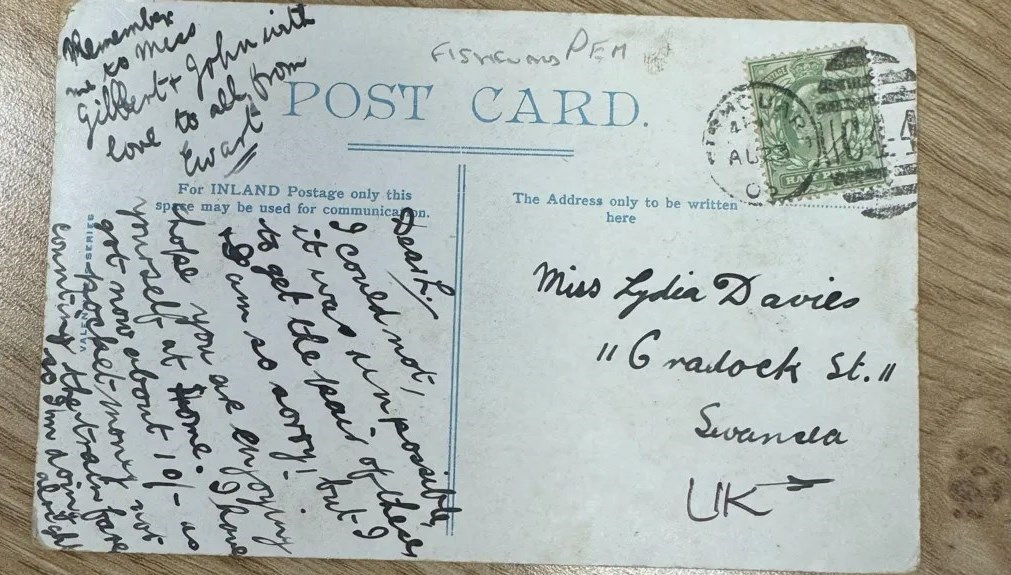 Remember
me to Miss
Gilbert + John with
love to all, from
Ewart
FISHGUARD PEM
POST CARD.
For INLAND Postage only this
space may be used for communication.
The Address only to be written
here
VALENTINES SERIES
Dear L.
I could not,
it was unpossible,
to get the pair of these
& I am so sorry! but I
hope you are enjoying
yourself at home. I have
got now about 10/- as
pocket money not
counting the train fare
so I'm doing
alright
Miss Lydia Davies
"Cradock St."
Swansea
UK